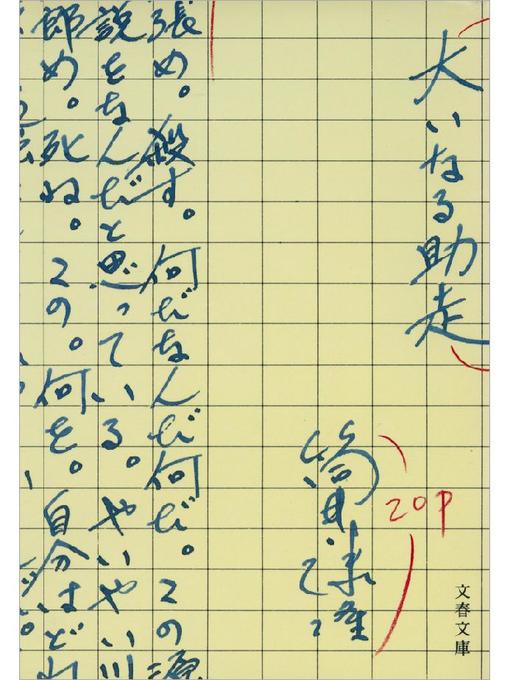 大いなる助走
筒井康隆
20P
張め。殺す。何だなんだ何だ。この源
説をなんだと思っている。やいやい川
郎め。死ね。この。何を。自分はどれ
文春文庫